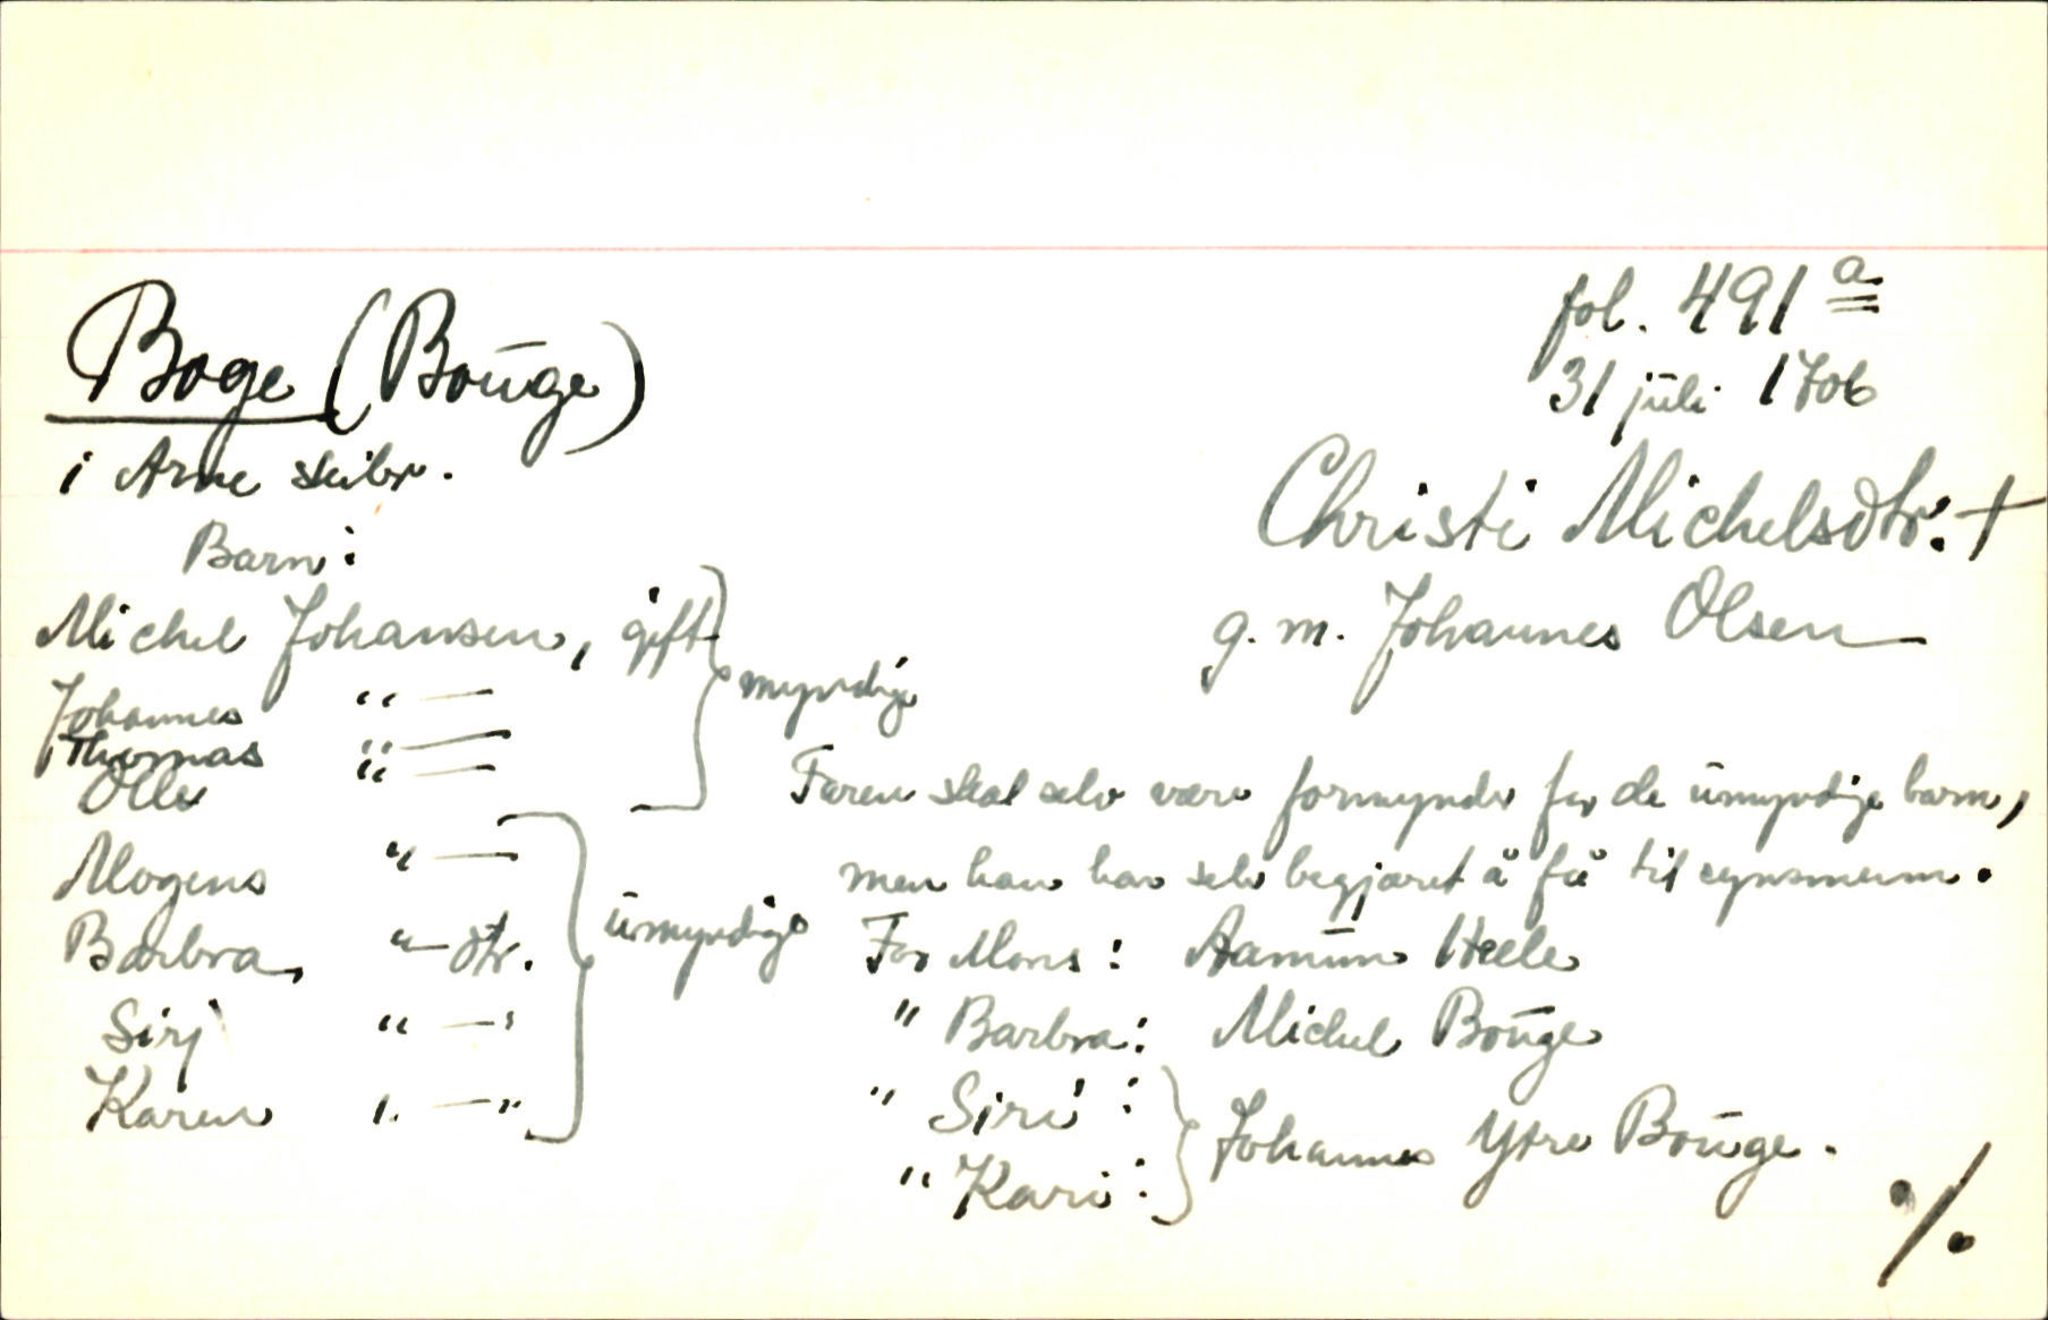 fol. 491 a
31 juli 1706
Boge (Bouge)
i Arne skibr.
Christi Michelsdtr. +
g. m. Johannes Olsen
Barn:
Michel Johansen, gift } myndige
Johannes " —
Thomas " —
Olle " —
Mogens " — } umyndige
Barbra, " — dtr.
Sirj " — "
Karen " — "
Faren skal selv være formynder for de umyndige barn,
men han har selv begjæret å få tilsynsmenn.
For Mons: Aamun Heele
" Barbra: Michel Bouge
" Siri: } Johannes Ytre Bouge.
" Kari:
·/.